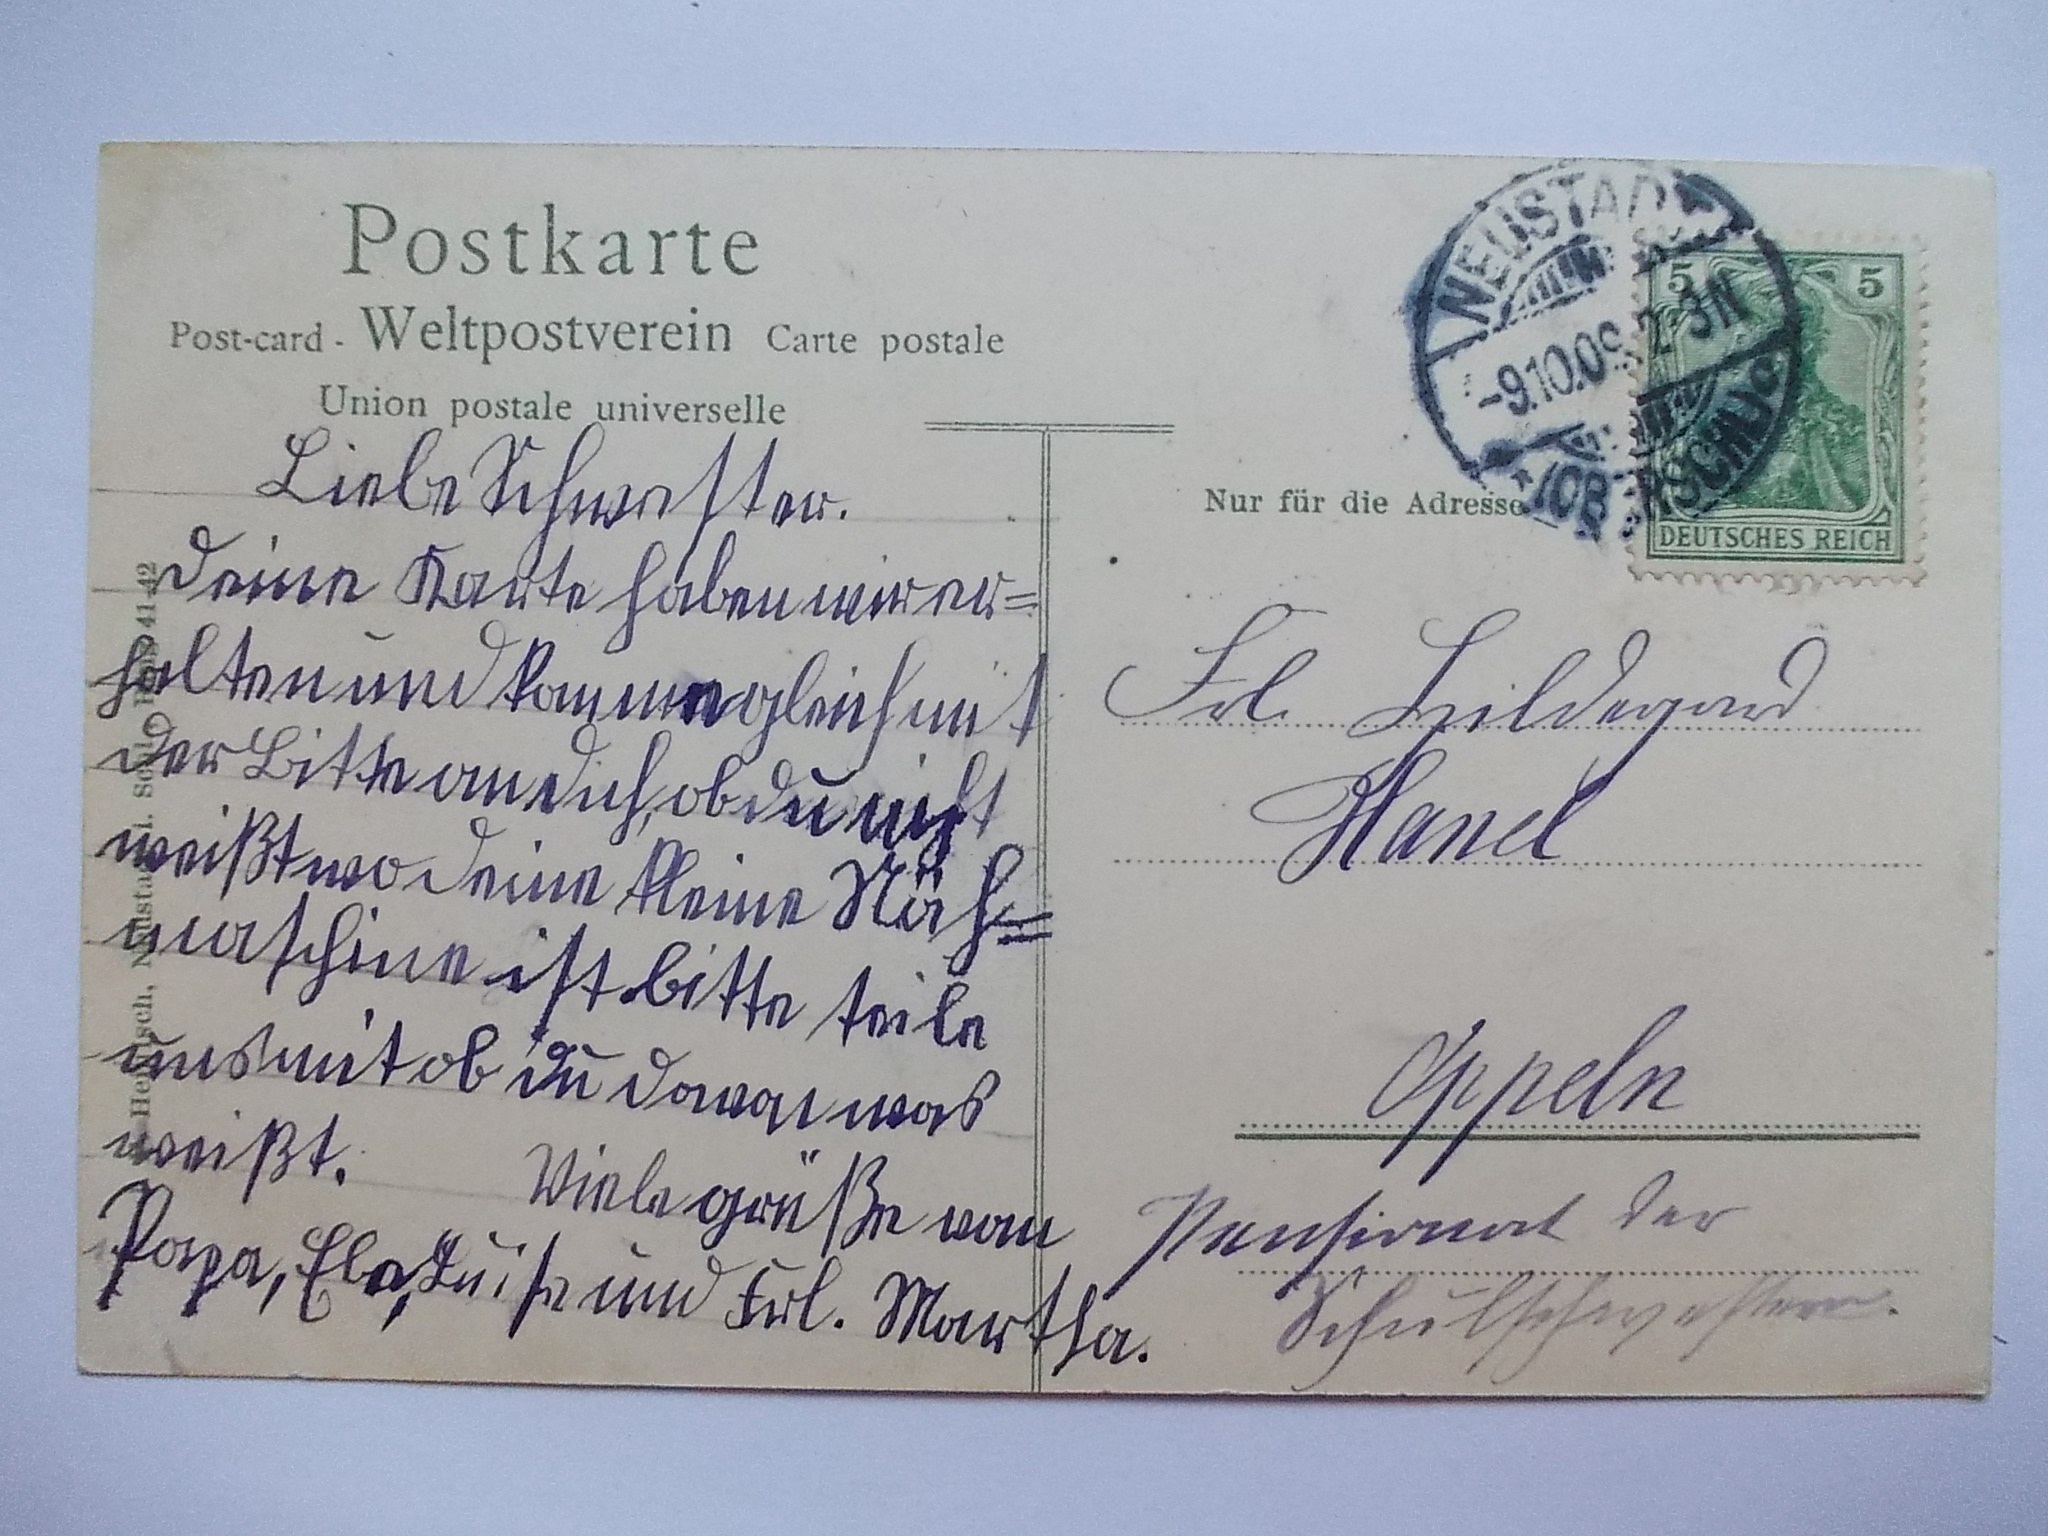 Postkarte
Post-card - Weltpostverein Carte postale
Union postale universelle
NEUSTADT
-9.10.09. 2-3N
* (OBERSCHLES
5 5
DEUTSCHES REICH
Nur für die Adresse
Liebe Schwester.
Deine Karte haben wir er=
halten und kommen gleich mit
der Bitte an dich, ob du nicht
weißt wo deine kleine Näh=
maschine ist bitte teile
uns mit ob du davon was
weißt.
Viele grüße von
Papa, Luise und Frl. Martha.
Frl. Hildegard
Hanel
Oppeln
Pensionat der
Schulschwestern.
Neustadt
4142